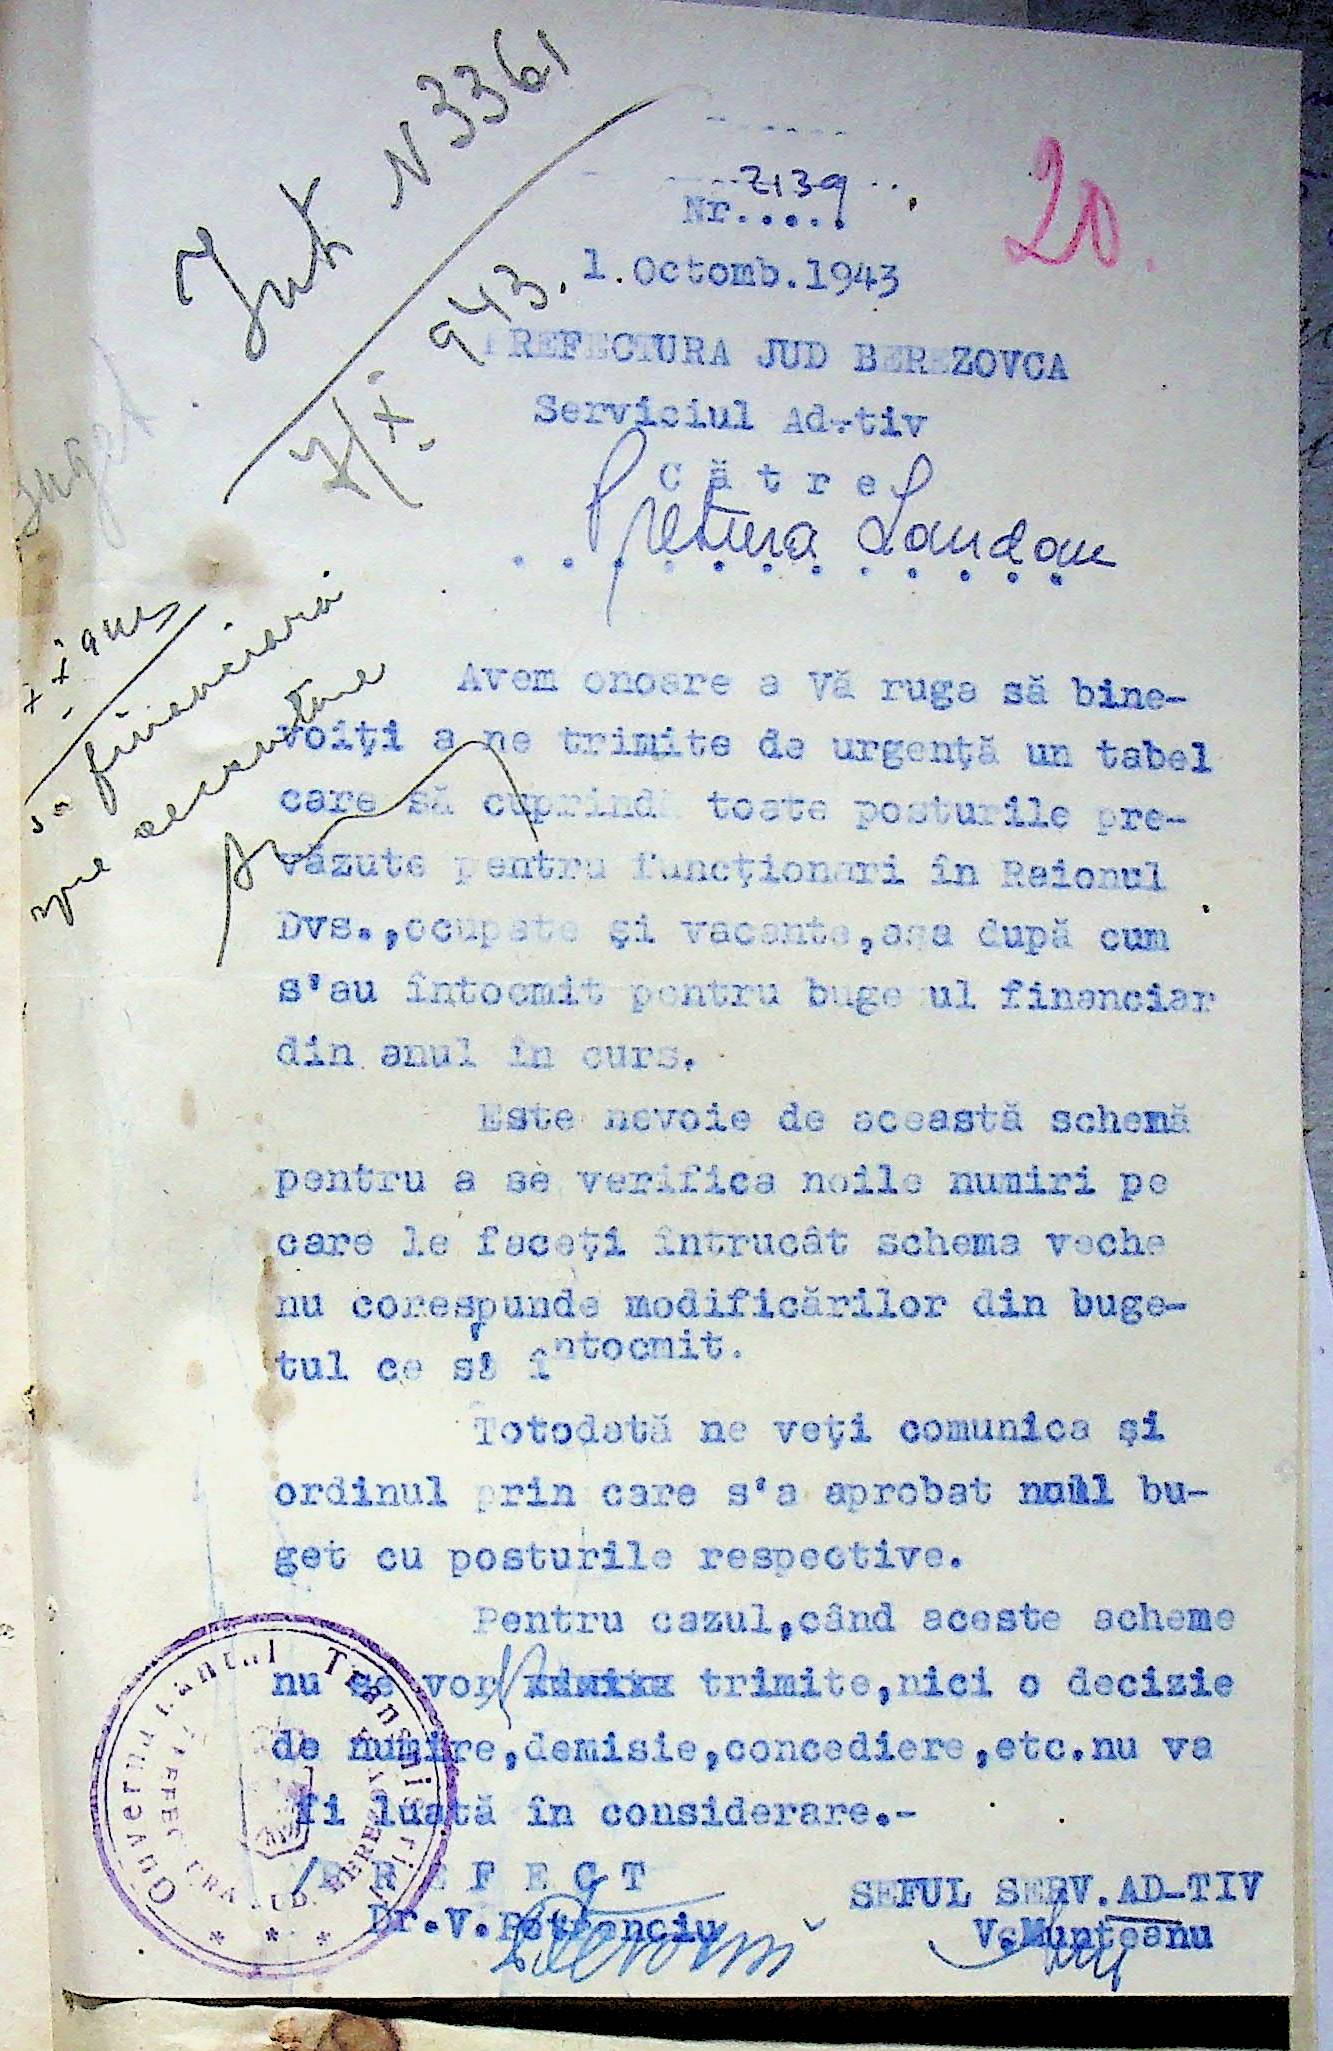 Int N 3361
7/X. 943.
20.
2139
Nr.....
1.Octomb.1943
PREFECTURA JUD BEREZOVCA
Serviciul Ad-tiv
C ă t r e
Pretura Landau
financiară
spre
Avem onoare a Vă ruga să bine-
voiţi a ne trimite de urgenţă un tabel
care să cuprindă toate posturile pre-
văzute pentru funcţionari în Raionul
Dvs.,ocupate şi vacante,aşa după cum
s'au întocmit pentru bugetul financiar
din anul în curs.
Este nevoie de această schemă
pentru a se verifica noile numiri pe
care le faceţi întrucât schema veche
nu corespunde modificărilor din buge-
tul ce să întocmit.
Totodată ne veţi comunica şi
ordinul prin care s'a aprobat noul bu-
get cu posturile respective.
Pentru cazul,când aceste scheme
nu se vor trimite,nici o decizie
de numire,demisie,concediere,etc.nu va
fi luată în considerare.-
/P R E F E C T
Dr.V.Petrenciu
SEFUL SERV.AD-TIV
V.Munteanu
Guvernământul Transnistriei
PREFECTURA JUD. BEREZOVCA
* * *